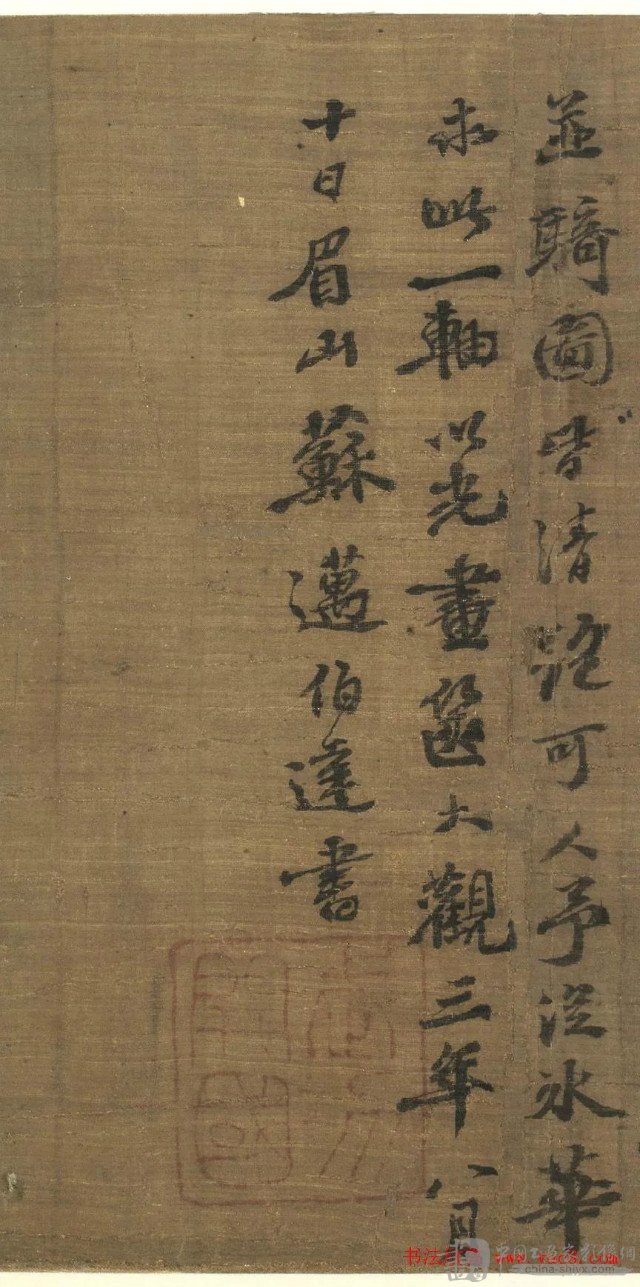 並騎圖皆清絕可人予從冰華
求此一軸以光畫篋大觀三年八月
十日眉山蘇邁伯達書
书法
www.
china-shjyx.com